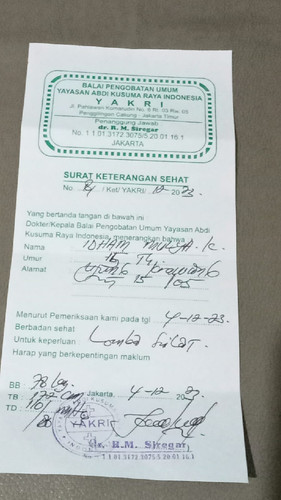 BALAI PENGOBATAN UMUM
YAYASAN ABDI KUSUMA RAYA INDONESIA
Y A K R I
Jl. Pahlawan Komarudin No. 5 Rt. 03 Rw. 05
Penggilingan Cakung - Jakarta Timur
Penanggung Jawab
dr. R. M. Siregar
No. 1.1.01.3172.3075/5.20.01.16.1
JAKARTA
SURAT KETERANGAN SEHAT
No. / Ket/ YAKRI/ 12 2023
Yang bertanda tangan di bawah ini :
Dokter/Kepala Balai Pengobatan Umum Yayasan Abdi
Kusuma Raya Indonesia, menerangkan bahwa :
Nama IDHAM
Umur 15 Th
Alamat
15 05
Menurut Pemeriksaan kami pada tgl 4-12-23.
Berbadan sehat
Untuk keperluan : Lomba Silat.
Harap yang berkepentingan maklum
BB : 78 kg
Jakarta, 4-12-2023
TB : 172 cm
TD : 116/80
YAKRI
dr. R.M. Siregar
1.1.01.3172.3075/5.20.01.16.1